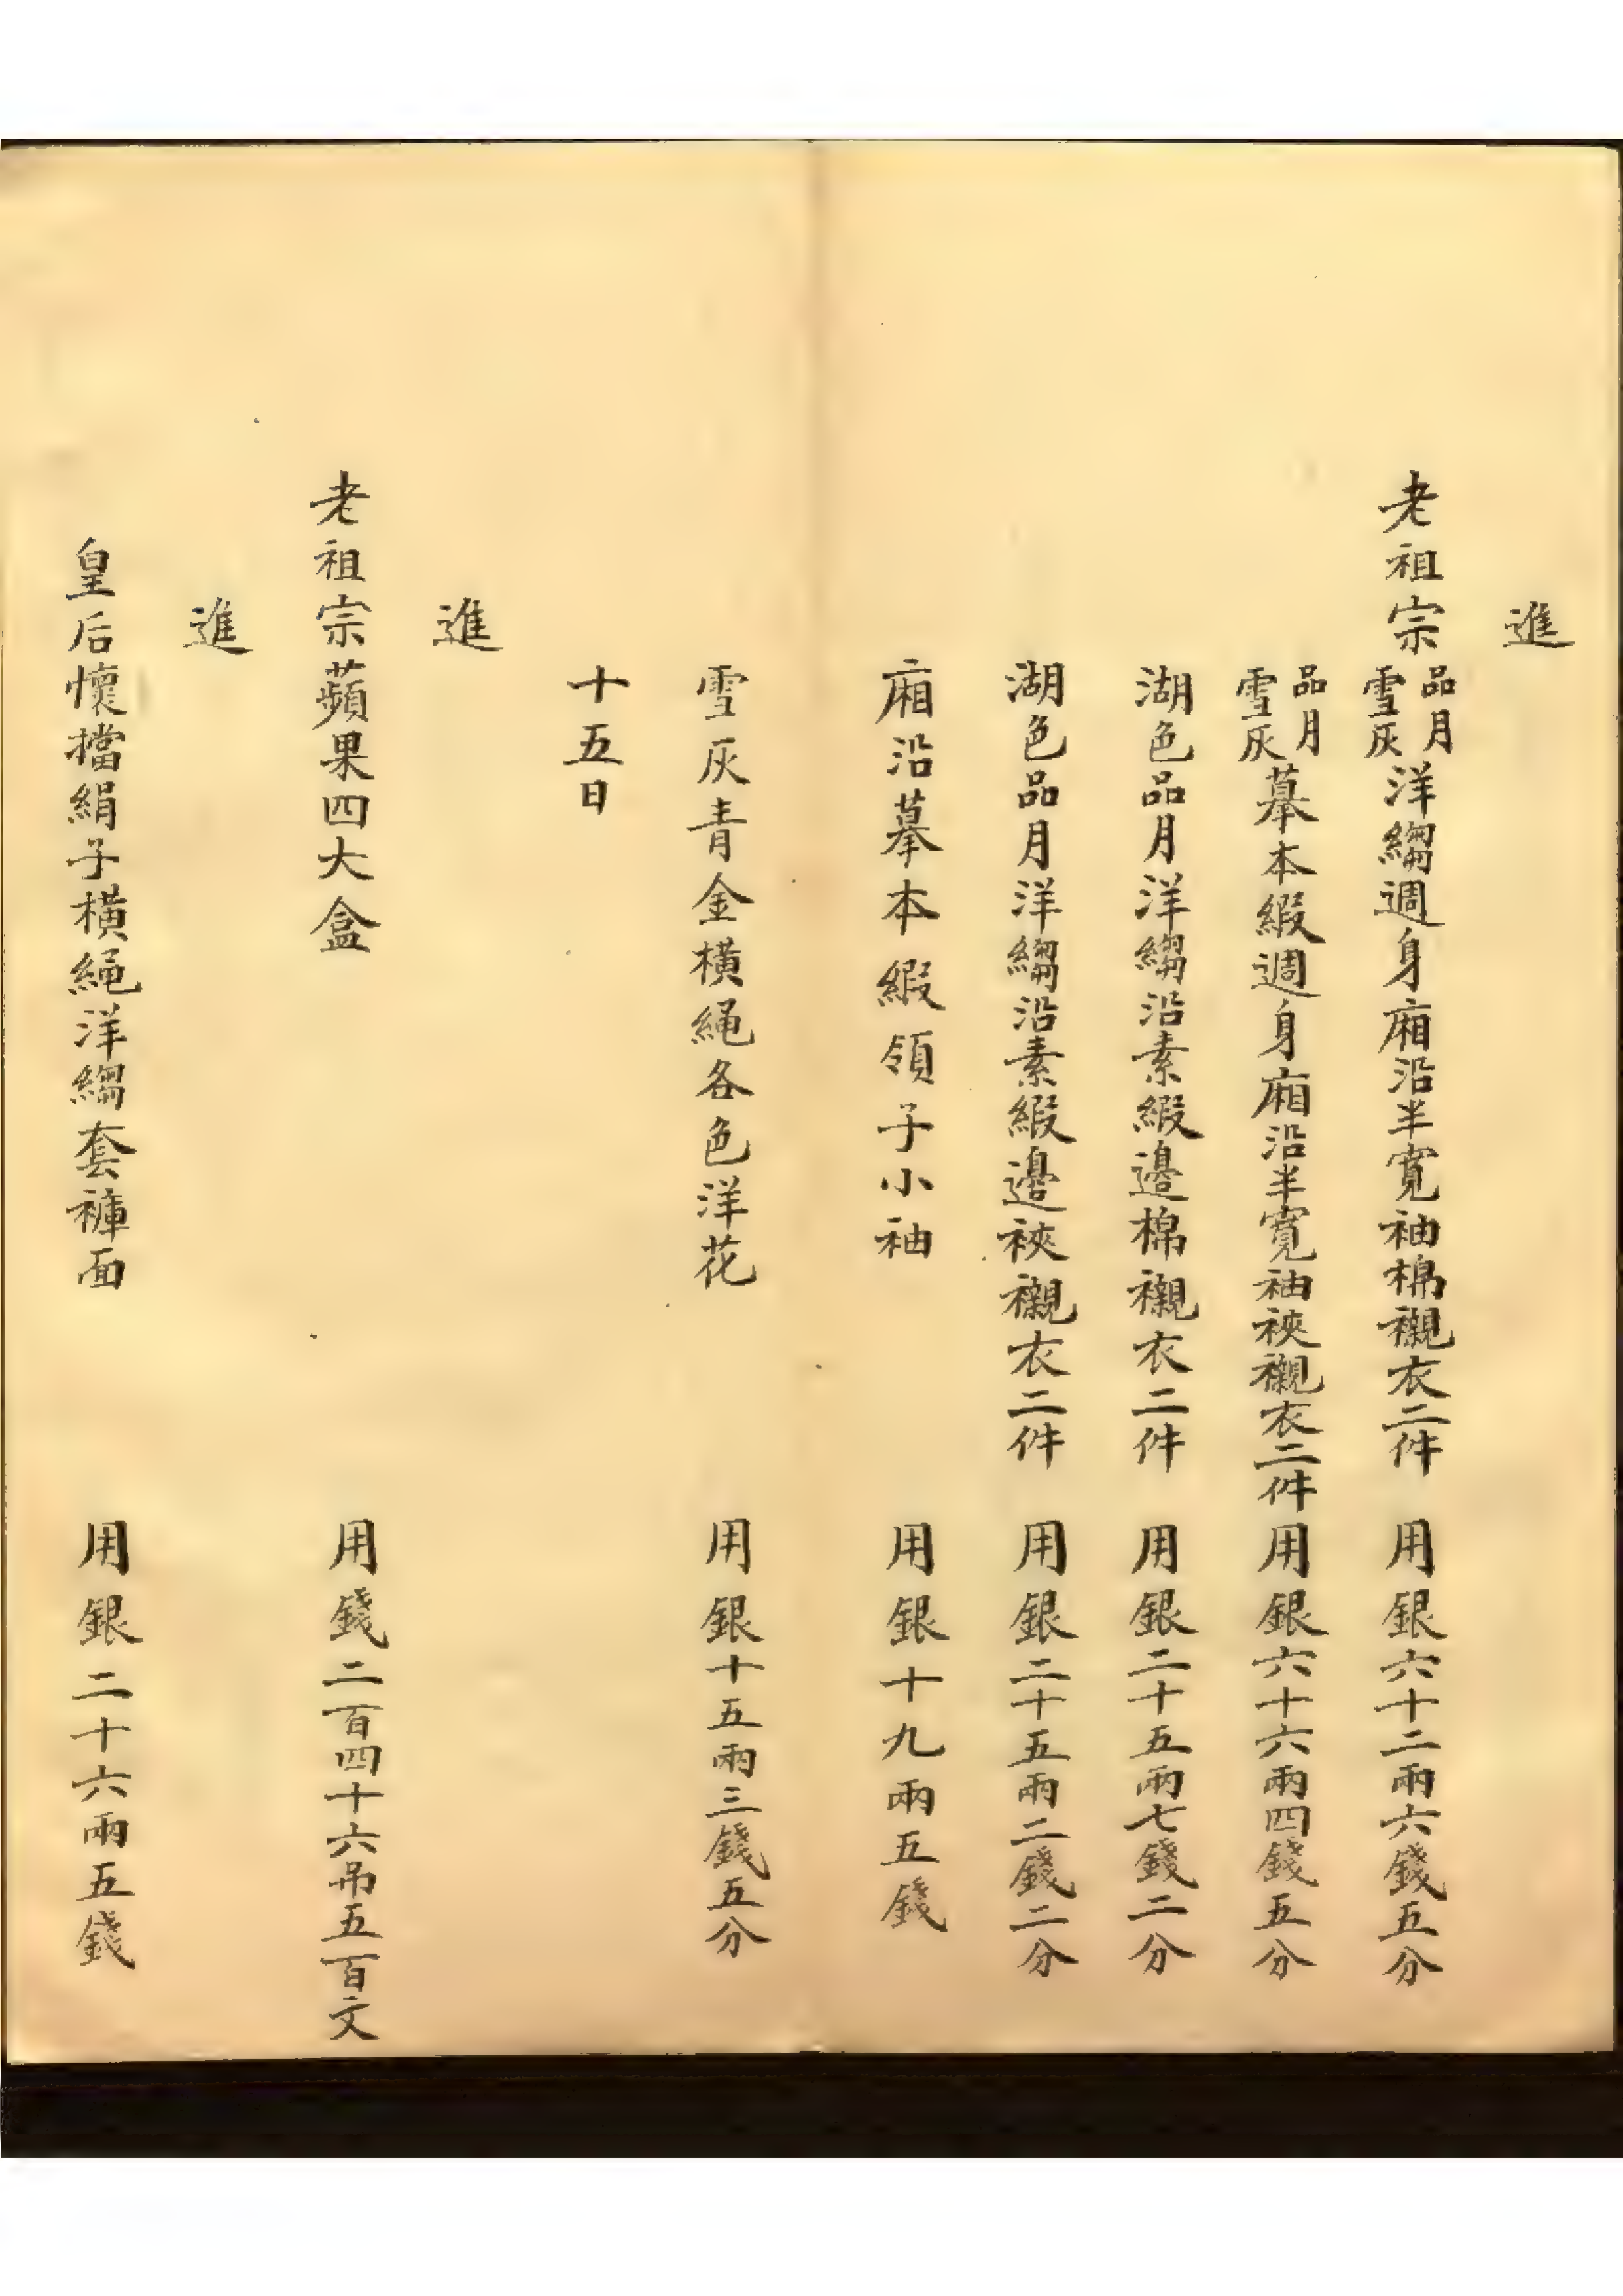 進
老祖宗品月雪灰洋縐週身廂沿半寬袖棉襯衣二件 用銀六十二兩六錢五分
品月雪灰摹本緞週身廂沿半寬袖裌襯衣二件用銀六十六兩四錢五分
湖色品月洋縐沿素緞邊棉襯衣二件 用銀二十五兩七錢二分
湖色品月洋縐沿素緞邊裌襯衣二件 用銀二十五兩二錢二分
廂沿摹本緞領子小袖 用銀十九兩五錢
雪灰青金橫繩各色洋花 用銀十五兩三錢五分
十五日
進
老祖宗蘋果四大盒 用錢二百四十六吊五百文
進
皇后懷擋絹子橫繩洋縐套褲面 用銀二十六兩五錢